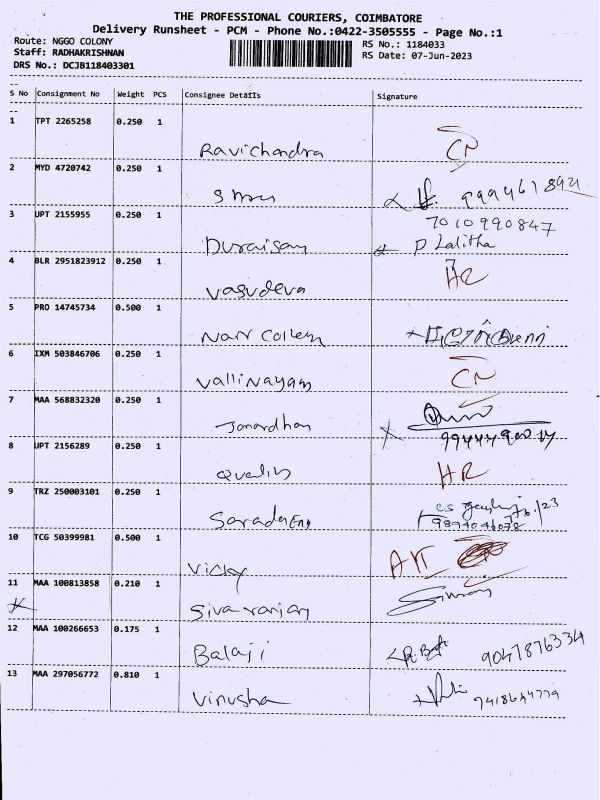 THE PROFESSIONAL COURIERS, COIMBATORE
Delivery Runsheet - PCM - Phone No.:0422-3505555 - Page No.:1
Route: NGGO COLONY
RS No.: 1184033
Staff: RADHAKRISHNAN
RS Date: 07-Jun-2023
DRS No.: DCJB118403301
S No Consignment No Weight PCS Consignee Details Signature
1 TPT 2265258 0.250 1
Ravichandra CN
2 MYD 4720742 0.250 1
3 UPT 2155955 0.250 1
7010990847
Duraisam P Lalitha
4 BLR 2951823912 0.250 1
Vasudeva
5 PRO 14745734 0.500 1
6 IXM 503846706 0.250 1
Vallinayam CN
7 MAA 568832320 0.250 1
Janardhan
8 UPT 2156289 0.250 1
HR
9 TRZ 250003101 0.250 1
Sarada Eng
10 TCG 50399981 0.500 1
Vicky
11 MAA 100813858 0.210 1
Sivaranjan
12 MAA 100266653 0.175 1
Balaji 9047876334
13 MAA 297056772 0.810 1
Vinusha